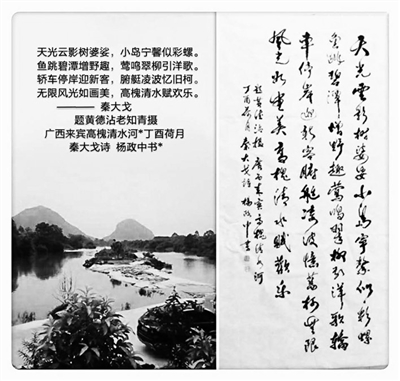 天光云影树婆娑，小岛宁馨似彩螺。
鱼跳碧潭增野趣，莺鸣翠柳引洋歌。
轿车停岸迎新客，腑艇凌波忆旧柯。
无限风光如画美，高槐清水赋欢乐。
——— 秦大戈
题黄德沾老知青摄
广西来宾高槐清水河*丁酉荷月
秦大戈诗 杨政中书*
天光雲影树婆娑小岛宁馨似彩螺
鱼跳碧潭增野趣莺鸣翠柳引洋歌轿
车停岸迎新客腑艇凌波忆旧柯無限
風光如画美高槐清水赋歡乐
丁酉荷月秦大戈诗杨政中書